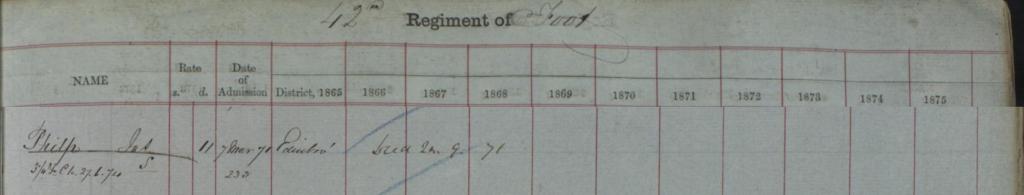 42nd Regiment of Foot
NAME Rate s. d. Date of Admission District, 1865 1866 1867 1868 1869 1870 1871 1872 1873 1874 1875
Philp Jas 11 7 Mar 71 Edinbro' Died 71
S